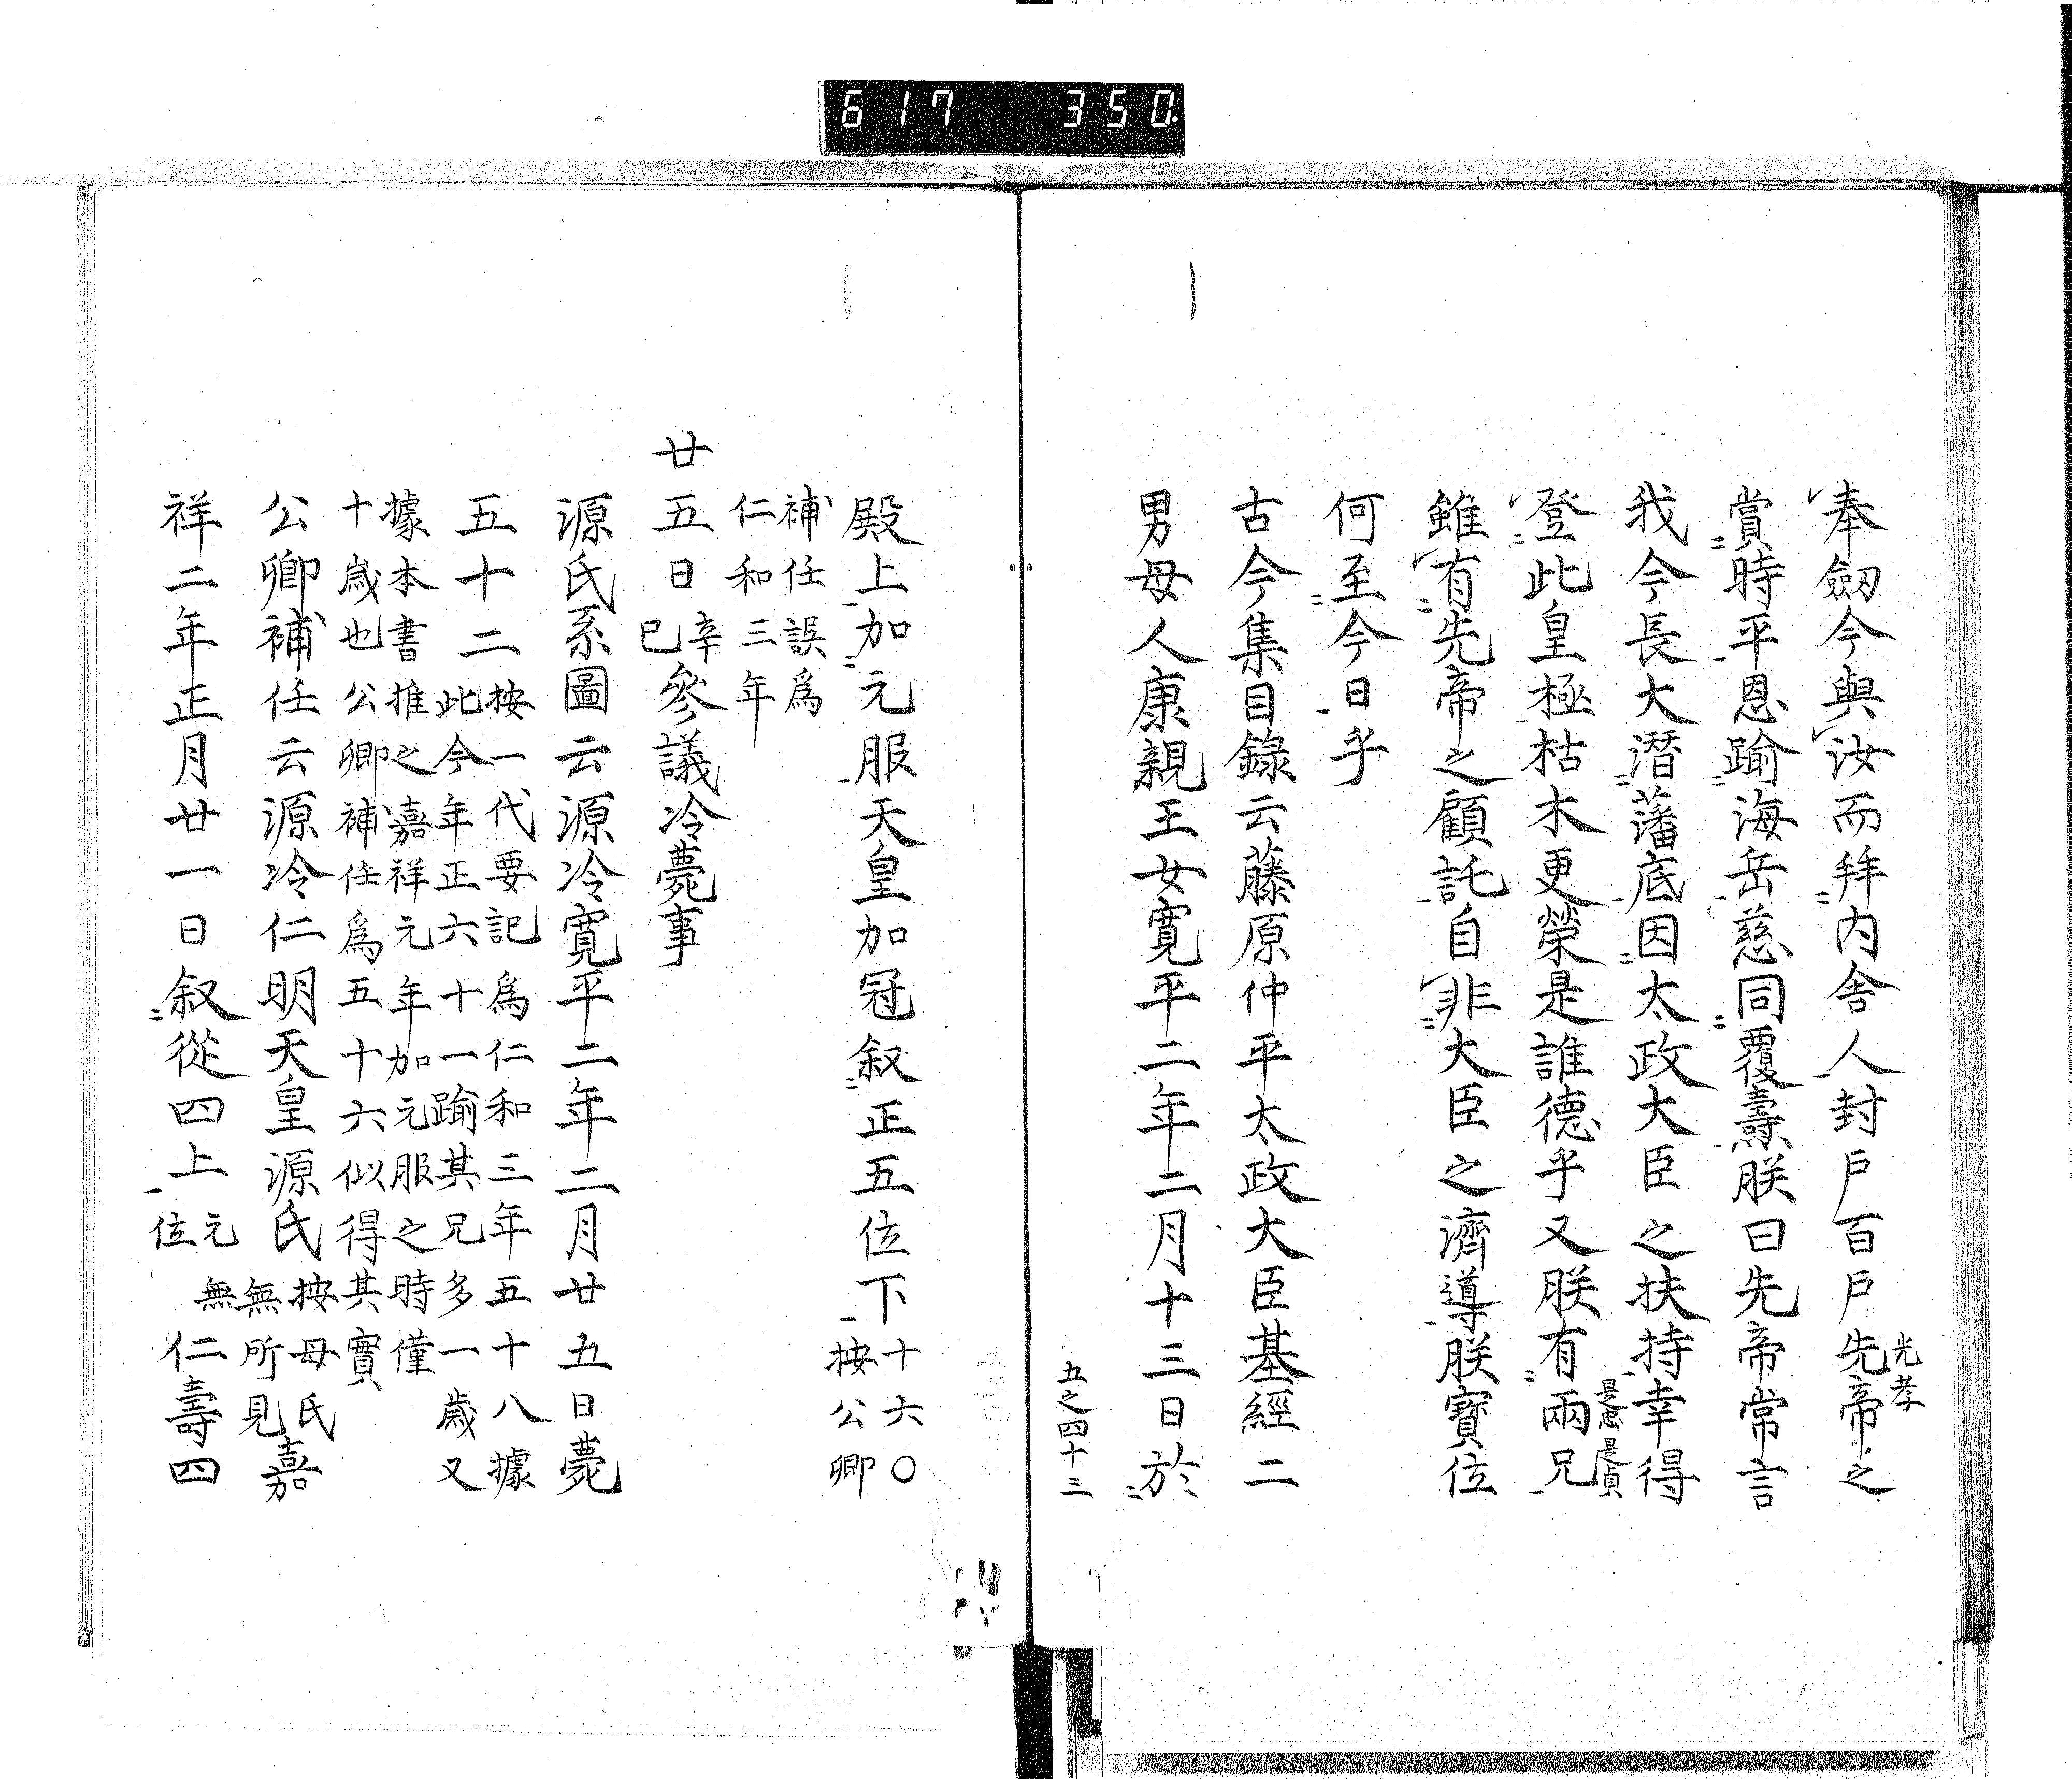 617 350
奉劒今與汝而拜内舍人封戸百戸先帝之
光孝
賞時平恩踰海岳慈同覆燾朕曰先帝常言
我今長大潛藩底因太政大臣之扶持幸得
登此皇極枯木更榮是誰德乎又朕有兩兄
是忠是貞
雖有先帝之顧託自非大臣之濟導朕寶位
何至今日乎
古今集目錄云藤原仲平太政大臣基經二
男母人康親王女寛平二年二月十三日於
五之四十三
殿上加元服天皇加冠叙正五位下十六〇
按公卿
補任誤爲
仁和三年
廿五日辛巳參議冷薨事
源氏系圖云源冷寛平二年二月廿五日薨
五十二按一代要記爲仁和三年五十八據
此今年正六十一踰其兄多一歳又
據本書推之嘉祥元年加元服之時僅
十歳也公卿補任爲五十六似得其實
公卿補任云源冷仁明天皇源氏按母氏無所見嘉
祥二年正月廿一日叙從四上元無位仁壽四